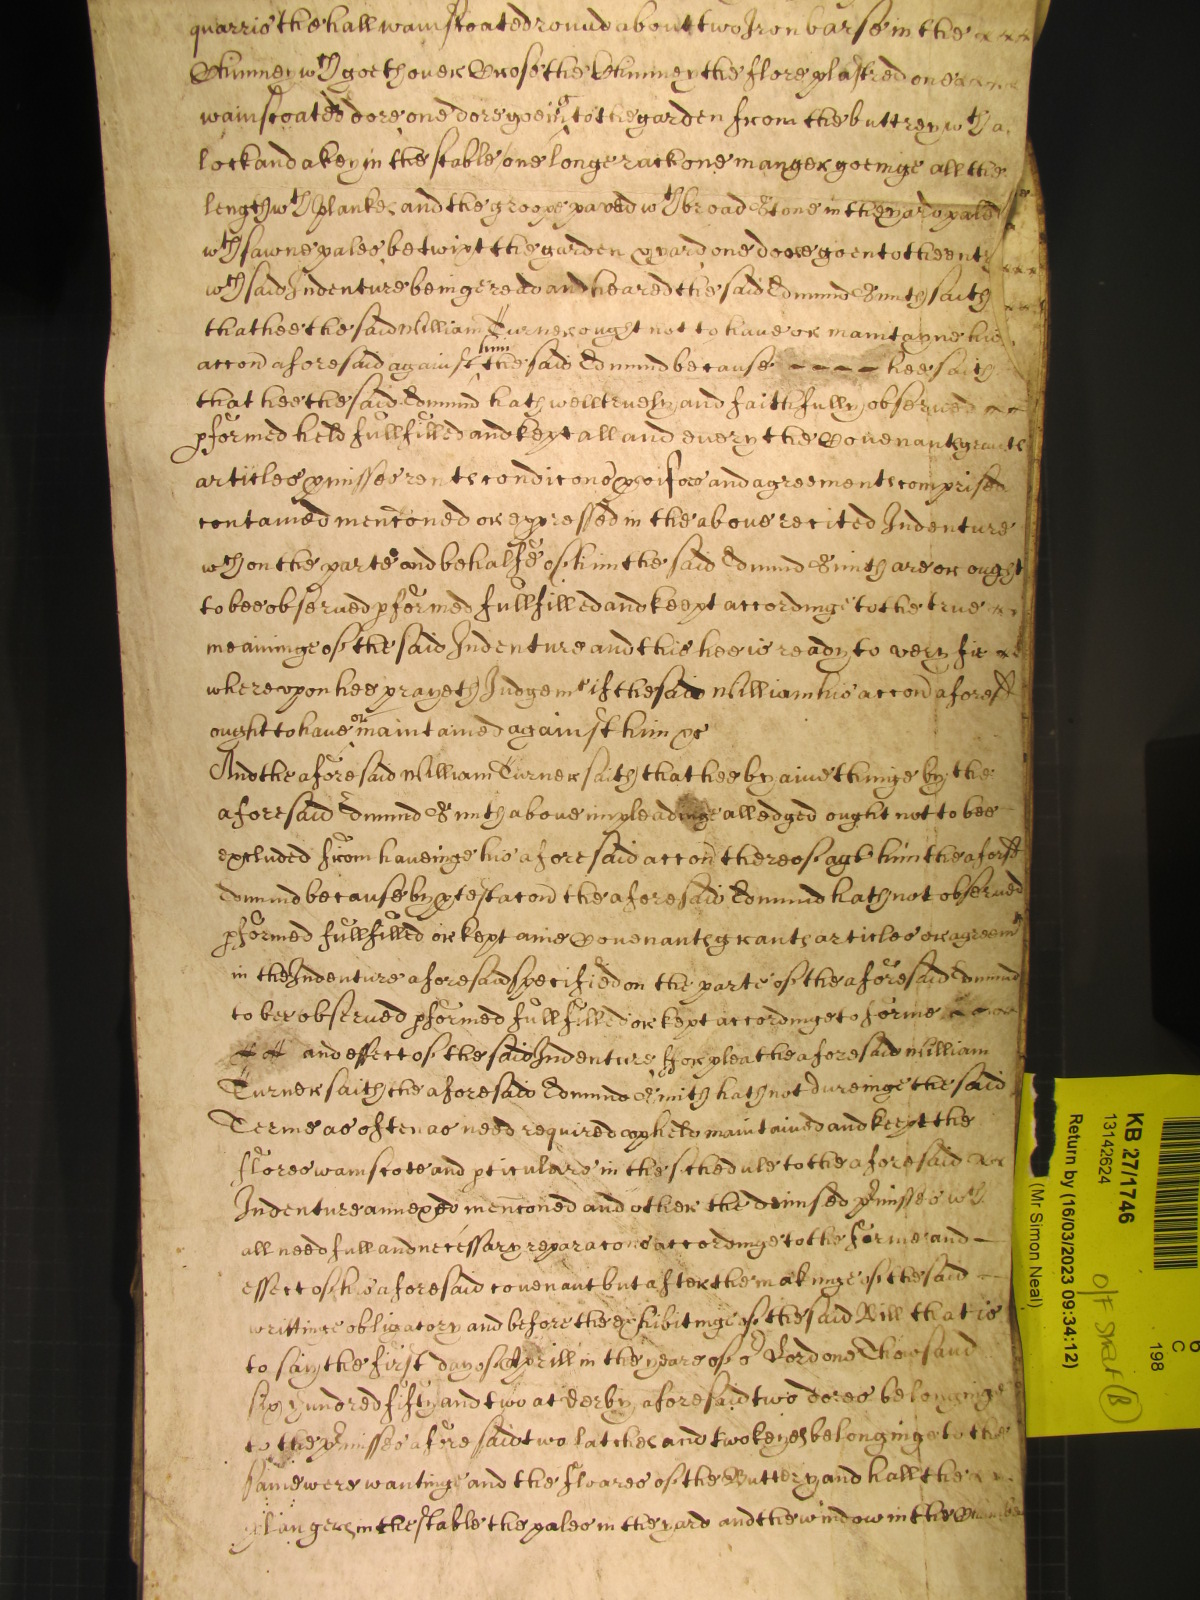 quarrie the hall wainscoated round about two Iron barse in the
Chimney wch goeth over Crose the Chimney the flore plastred one
wainscoated dore one dore goeing to the garden from the buttrey wth a
lock and a key in the stable one longe rack one manger goeinge all the
length wth plankes and the groope paved wth broad Stone in the yard paled
wth sawne pales betwixt the garden & yard one doore goen to the entry
wch said Indenture beinge read and heared the said Edmund Smith saith
that hee the said William Turner ought not to have or maintayne his
accon aforesaid against him the said Edmund because ---- hee saith
that hee the said Edmund hath well truely and faithfully observed
pformed held fullfilled and kept all and every the Covenants graunts
articles pmisses rents condicons provisoes and agreements comprised
contained mencioned or expressed in the above recited Indenture
wch on the parte and behalfe of him the said Edmund Smith are or ought
to bee observed pformed fullfilled and keept accordinge to the true
meaininge of the said Indenture and this hee is ready to veryfie
whereupon hee prayeth Judgemt if the said William his accon aforesd
ought to have or maintained against him &c
And the aforesaid William Turner saith that hee by anie thinge by the
aforesaid Edmund Smith above in pleadinge alledged ought not to bee
excluded from haveinge his aforesaid accon thereof agt him the aforesd
Edmund because by ptestacon the aforesaid Edmund hath not observed
pformed fullfilled or kept anie Covenants grants articles or agreemts
in the Indenture aforesaid specified on the parte of the aforesaid Edmund
to bee observed pformed fullfilled or kept accordinge to forme
and effect of the said Indenture ffor plea the aforesaid William
Turner saith the aforesaid Edmund Smith hath not dureinge the said
Terme as often as need required upheld maintained and keept the
flores wainscote and pticulars in the schedule to the aforesaid
Indenture annexed mencioned and other the demised pmisses wth
all needfull and necessary reparacons accordinge to the forme and
effect of his aforesaid covenant but after the makinge of the said
writtinge obligatory and before the exhibitinge of the said Bill that is
to say the first day of Aprill in the yeare of or Lord one Thousand
six hundred fifty and two at Derby aforesaid two dores belonginge
to the pmisses aforesaid two latches and two keyes belonginge to the
same were wantinge and the floares of the Buttery and hall the
plangers in the stable the pales in the yard and the window in the
KB 27/1746
13142624
Return by (16/03/2023 09:34:12)
(Mr Simon Neal)
O/F Shelf (B)
198
C
6